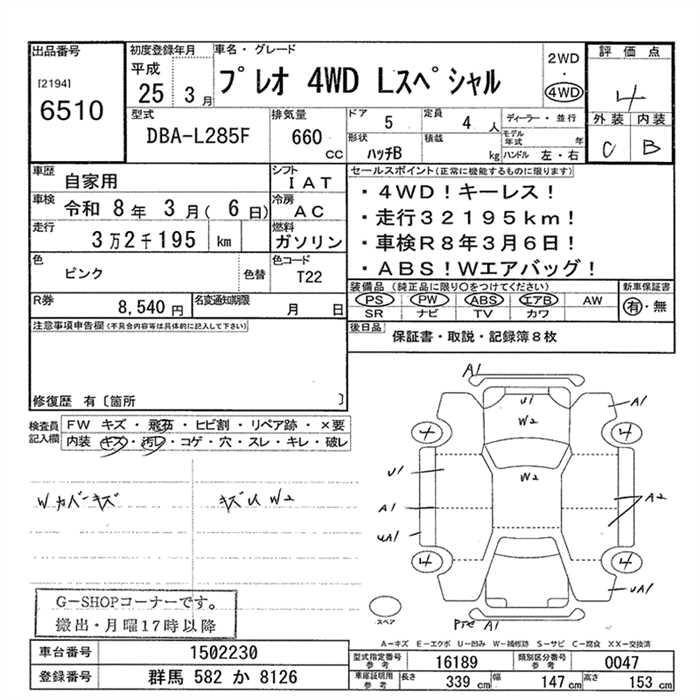 出品番号
[2194]
6510
初度登録年月
平成
25 3月
車名・グレード
プレオ 4WD Lスペシャル
2WD
・
4WD
評価点
4
外装 内装
C B
型式
DBA-L285F
排気量
660
cc
ドア
5
定員
4 人
形状
ハッチB
積載
kg
ディーラー・並行
モデル年式 年
ハンドル 左・右
車歴
自家用
シフト
IAT
車検
令和 8年 3月( 6日)
冷房
AC
走行
3万2千195 km
燃料
ガソリン
色
ピンク
色替
色コード
T22
R券
8,540円
名変通知期限
月 日
セールスポイント(正常に機能するものに限ります)
・4WD!キーレス!
・走行32195km!
・車検R8年3月6日!
・ABS!Wエアバッグ!
装備品(純正品に限り○をつけてください)
PS PW ABS エアB AW
SR ナビ TV カワ
新車保証書
有・無
後日品
保証書・取説・記録簿8枚
注意事項申告欄(不具合内容等は具体的に記入して下さい)
修復歴 有〔箇所 〕
検査員記入欄
FW キズ・飛石・ヒビ割・リペア跡・×要
内装 キズ・汚レ・コゲ・穴・スレ・キレ・破レ
Wカバーキズ
キズU W2
G-SHOPコーナーです。
搬出・月曜17時以降
A1
U1
W2
A1
4
4
W2
U1
A1
A2
UA1
4
4
UA1
スペア
Pte A1
A-キズ E-エクボ U-凹み W-補修跡 S-サビ C-腐食 XX-交換済
車台番号
1502230
登録番号
群馬 582 か 8126
型式指定番号
参考
16189
類別区分番号
参考
0047
車庫証明用
参考
長さ 339 cm
幅 147 cm
高さ 153 cm